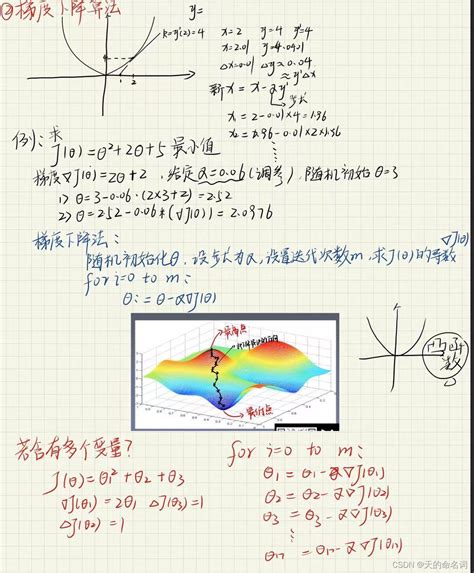 ②梯度下降算法
y=
k=y'(2)=4
1 2
x=2 y=4 y'=4
x=2.01 y=4.0401
Δx=0.01 Δy≈0.04
≈y'Δx
新x = x-αy'
步长
x = 2-0.01×4=1.96
x = 1.96-0.01×2×1.96
例: 求
J(θ)=θ²+2θ+5 最小值
梯度∇J(θ)=2θ+2, 给定α=0.06(调参), 随机初始θ=3
1) θ=3-0.06·(2×3+2)=2.52
2) θ=2.52-0.06*(∇J(θ))=2.0976
梯度下降法:
∇J(θ)
随机初始化θ, 设步长为α, 设置迭代次数m, 求J(θ)的导数
for i=0 to m:
θ:=θ-α∇J(θ)
最高点
最低点
凹函数
若含有多个变量?
J(θ)=θ₁²+θ₂+θ₃
∇J(θ₁)=2θ₁ ΔJ(θ₃)=1
ΔJ(θ₂)=1
for i=0 to m:
θ₁=θ₁-α∇J(θ₁)
θ₂=θ₂-α∇J(θ₂)
θ₃=θ₃-α∇J(θ₃)
θₙ=θₙ-α∇J(θₙ)
CSDN @天的命名词